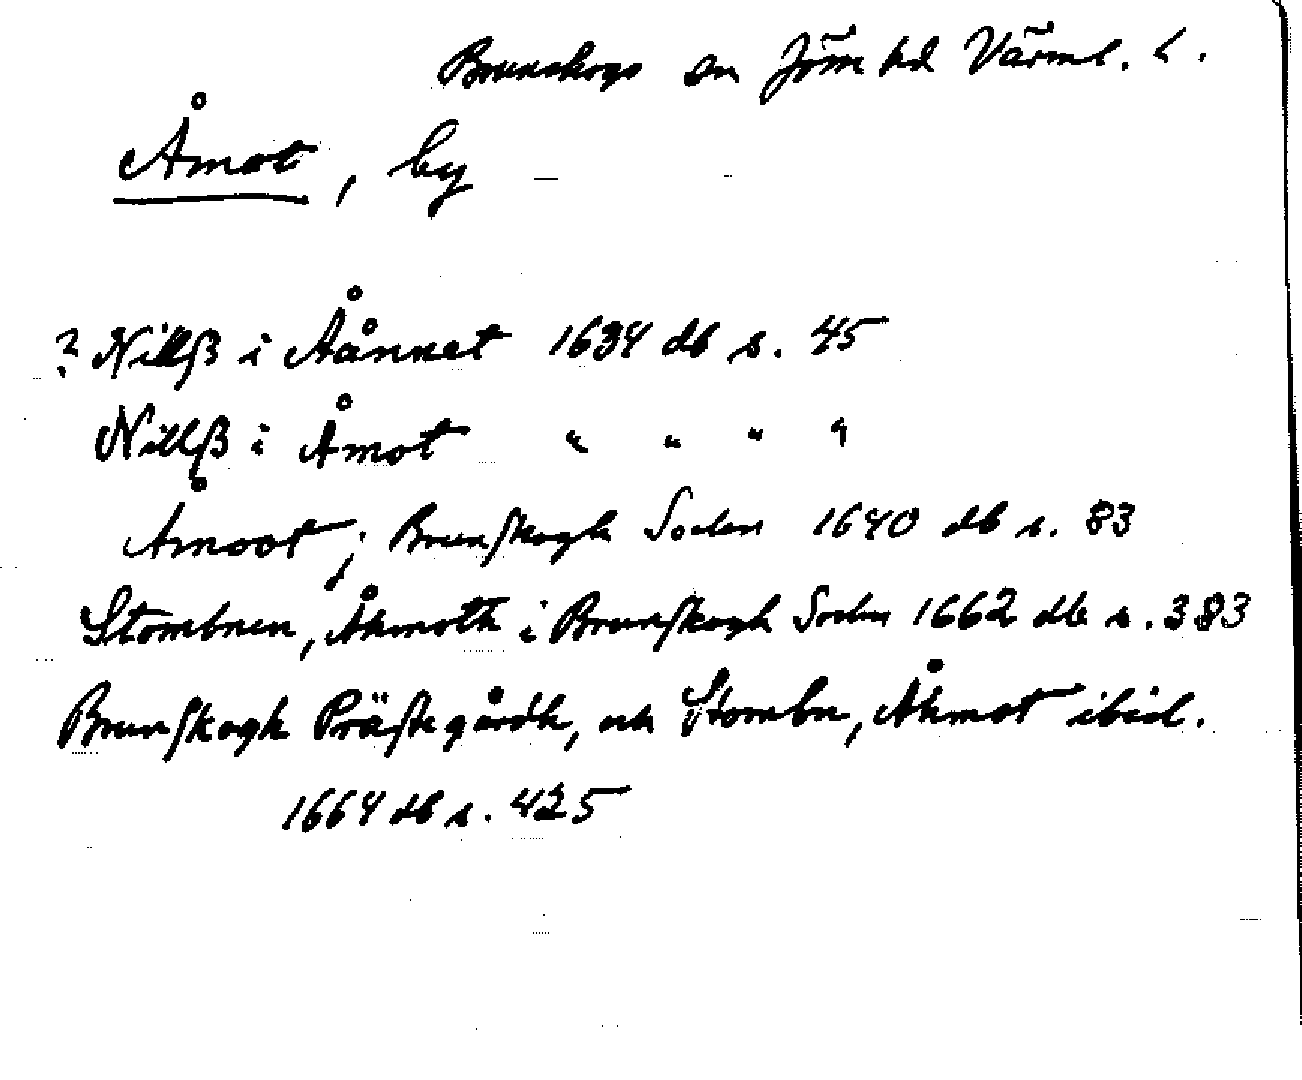 Brunskogs sn Jöss hd Värml. l.
Åmot, by
? Nillß i Åånnet 1634 db s. 45
Nillß i Åmot " " " "
Åmoot j Brunſkogh Sochn 1640 db s. 83
Stombnen, Åhmoth i Brunſkogh Sochn 1662 db s. 383
Brunſkogh Präſtegårdh, och Stombn, Åhmot ibid.
1664 db s. 425